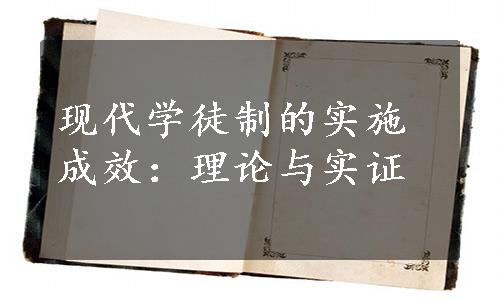 现代学徒制的实施
成效：理论与实证